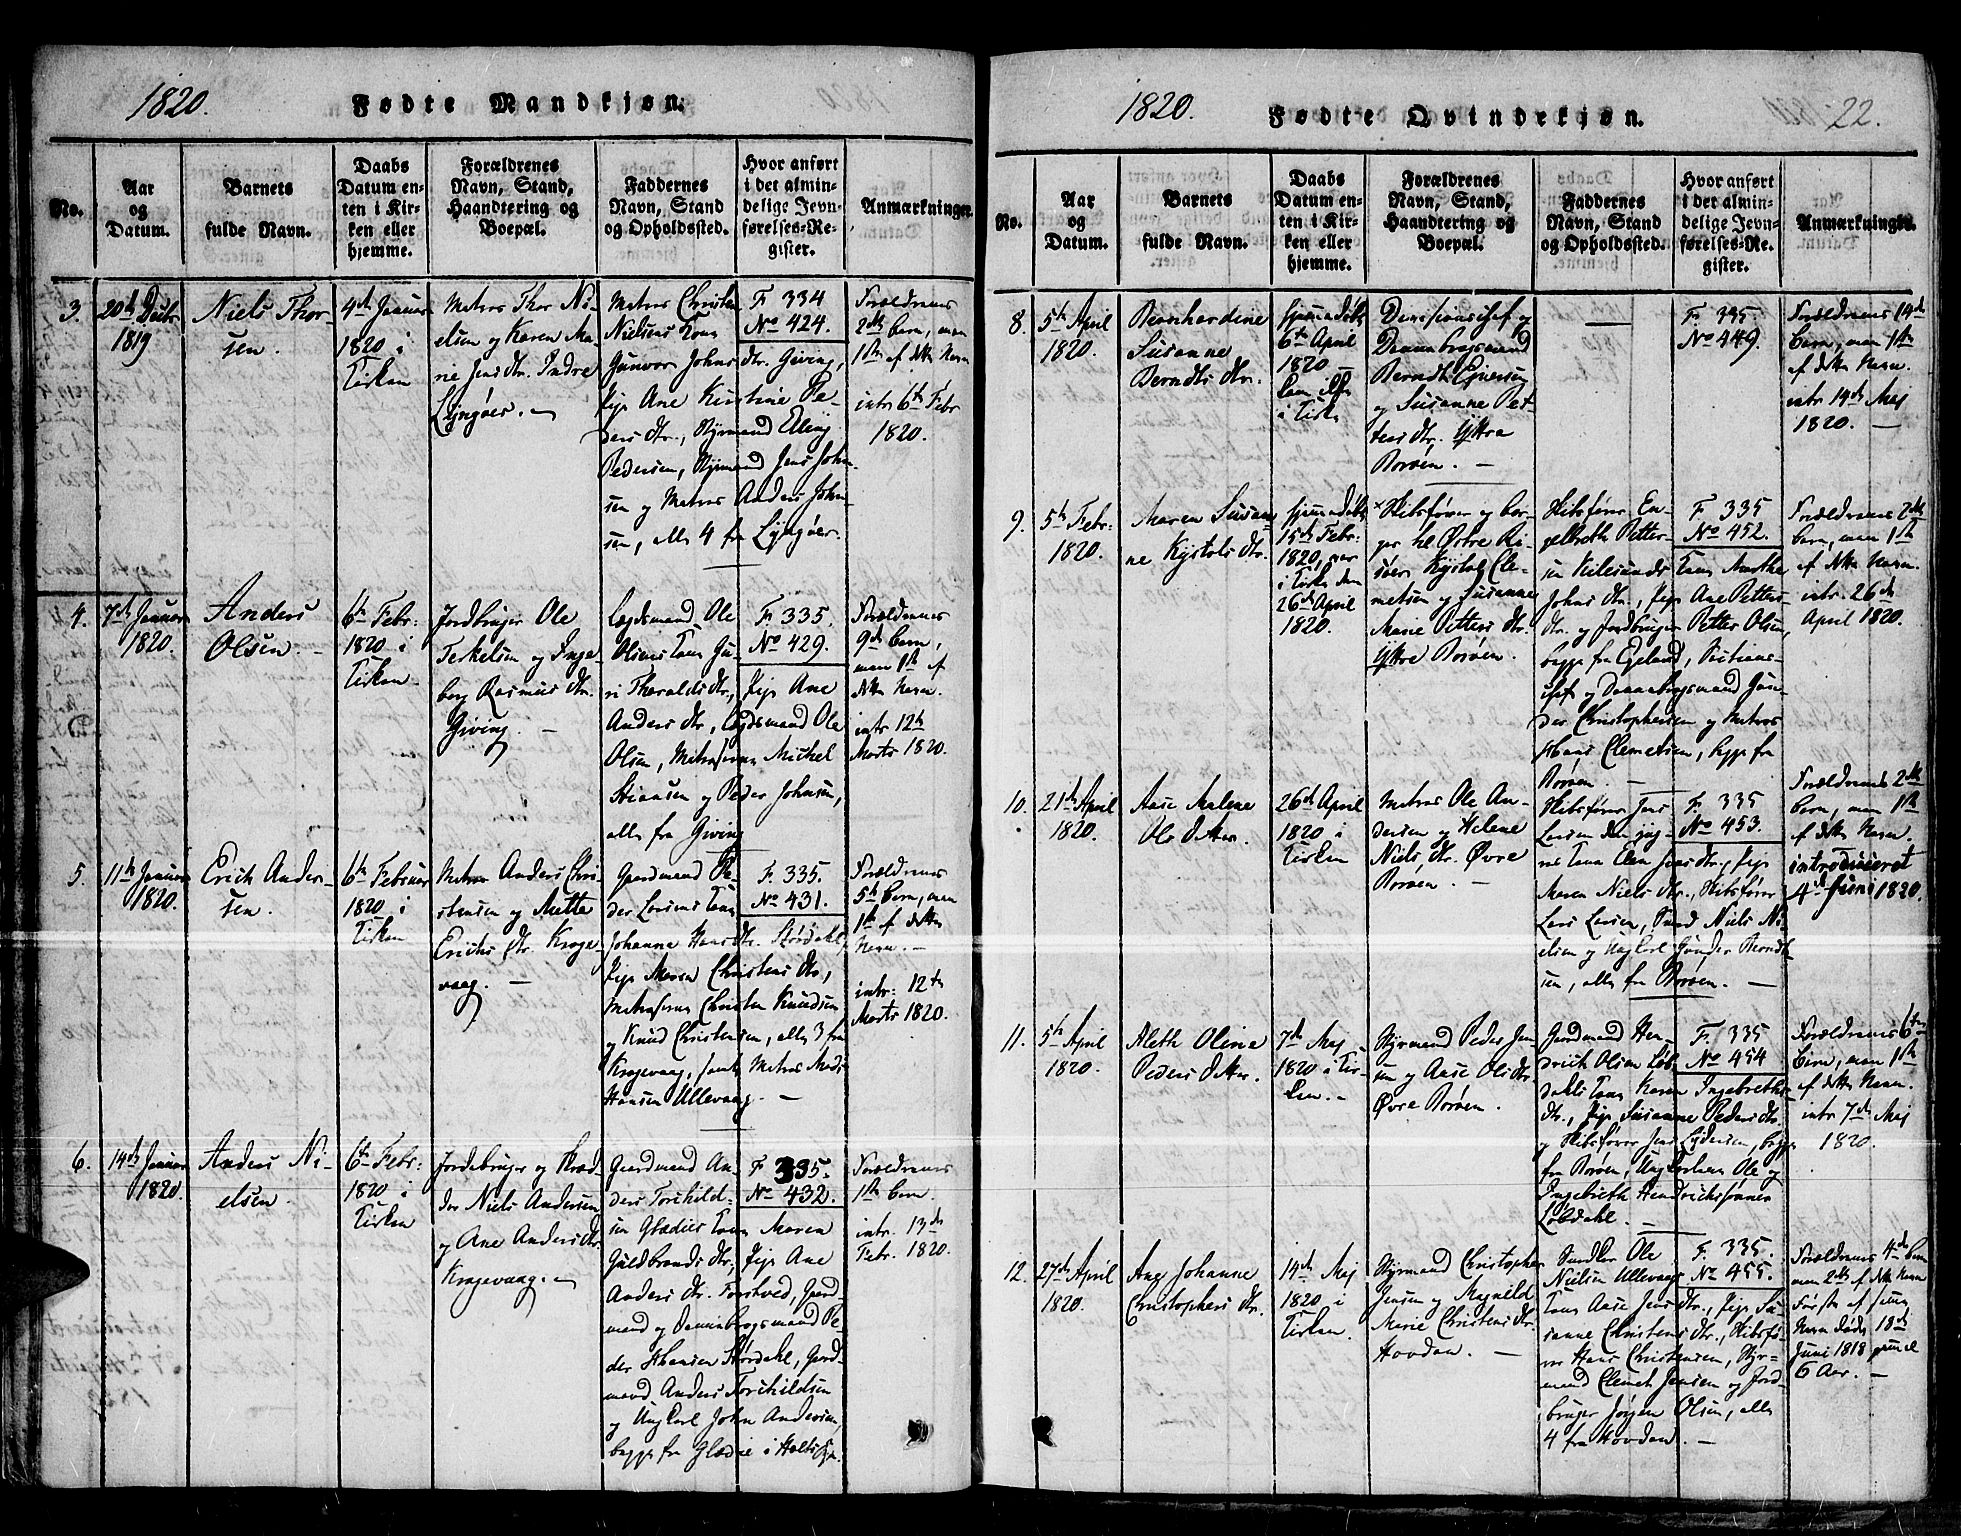 1820. Fødte Mandkjøn.
No.
Aar
og
Datum.
Barnets
fulde Navn.
Daabs
Datum en-
ten i Kir-
ken eller
hjemme.
Forældrenes
Navn, Stand,
Haandtering og
Boepæl.
Faddernes
Navn, Stand
og Opholdssted.
Hvor anført
i det almin-
delige Jevn-
førelses-Re-
gister.
Anmærkninger.
3.
20de Decbr.
1819
Niels Thor-
sen.
4de Januar
1820 i
Kirken
Matros Thor Ni-
elsen og Karen Ma-
rie Jensdtr. Indre
Lyngøer.
Matros Christen
Nielsens Kone
Gunvor Johnsdtr. Giving,
Pige Ane Kirstine Pe-
dersdtr., Styrmand Elling
Pedersen, Styrmand Jens John-
sen og Matros Anders John-
sen, alle 4 fra Lyngøer.
F 334
No 424.
Forældrenes
2det Barn, men
1ste af dette Navn
intr 6te Febr
1820.
4.
7de Januar
1820.
Anders
Olsen.
6te Febr.
1820 i
Kirken.
Jordbruger Ole
Terkelsen og Inge-
borg Rasmusdtr.
Giving.
Lægdsmand Ole
Olsens Kone Gu-
ri Tharaldsdtr.,
Pige Ane
Andersdtr., Lægdsmand Ole
Olsen, Matroserne Michel
Stiansen og Peder Johnsen,
alle fra Giving
F. 335.
No 429.
Forældrenes
9de Barn,
men 1ste af
dette Navn.
intr 12te
Marts 1820.
5.
11te Januar
1820.
Erich Ander-
sen.
6te Februar
1820 i
Kirken
Matros Anders Chri-
stensen og Mette
Erichsdtr. Krage-
vaag.
Gaardmand Pe-
der Larsens Kone
Johanne Hansdtr. Størdahl,
Pige Maren Christensdtr.,
Matroserne Christen Knudsen
og Knud Christensen, alle 3 fra
Kragevaag, samt Matros Mads
Hansen Ullevaag.
F. 335.
No 431.
Forældrenes
5te Barn, men
1ste af dette
Navn.
intr. 12te
Marts 1820.
6.
14de Januar
1820.
Anders Ni-
elsen.
6te Febr.
1820 i
Kirken
Jordebruger og Skræd-
der Niels Andersen
og Ane Andersdtr.
Kragevaag.
Gaardmand An-
ders Torchild-
sen Gladies Kone Maren
Guldbrandsdtr., Pige Ane
Andersdtr. Torstved, Gaard-
mand og Dannebrogsmand Pe-
der Hansen Størdahl, Gaard-
mand Anders Torchildsen
og Ung Karl John Andersen,
begge fra Gladie i Holts Sogn.
F 335.
No 432.
Forældrenes
1ste Barn.
intr. 13de
Febr. 1820.
1820. Fødte Qvindekjøn. 22.
No.
Aar
og
Datum.
Barnets
fulde Navn.
Daabs
Datum en-
ten i Kir-
ken eller
hjemme.
Forældrenes
Navn, Stand,
Haandtering og
Boepæl.
Faddernes
Navn, Stand
og Opholdssted.
Hvor anført
i det almin-
delige Jevn-
førelses-Re-
gister.
Anmærkninger.
8.
5te April
1820.
Bernhardine
Susanne
Berndts dtr.
hjemmedøbt
6te April
1820
i Kirke
Dannebrogsmand
Berndt Ejversen
og Susanne Pet-
tersdtr. Yttre
Borøen.
F. 335
No 449.
Forældrenes 14de
Barn, men 1ste
af dette Navn.
intr 14de Maj
1820.
9.
5te Febr.
1820.
Maren Susan-
ne Kystolsdtr.
hjemmedøbt
15de Febr.
1820, var
i Kirke den
26de April
1820.
Skibsfører og Bor-
ger til Østre Ri-
søer Kystol Cle-
metsen og Susanne
Marie Pettersdtr.
Yttre Borøen.
Skibsfører En-
gelbreth Petter-
sen Kilesunds Kone Marthe
Johnsdtr., Pige Ane Petters-
dtr. og Jordbruger Petter Olsen,
begge fra Egeland,
og Dannebrogsmand Gun-
der Christophersen og Matros
Hans Clemetsen, begge fra
Borøen.
F 335
No 452.
Forældrenes 2det
Barn, men 1ste
af dette Navn.
intr. 26de
April 1820.
10.
21de April
1820.
Aase Malene
Ols datter
26de April
1820 i
Kirken
Matros Ole An-
dersen og Helene
Nielsdtr. Øvre
Borøen.
Skibsfører Jens
Larsen den yng-
res Kone Elen Jensdtr., Pige
Maren Nielsdtr., Skibsfører
Lars Larsen, Niels Ni-
elsen og Ung Karl Gunder Berndt-
sen, alle fra Borøen.
F. 335
No 453.
Forældrenes 2det
Barn, men 1ste
af dette Navn.
introduceret
4de Juni 1820.
11.
5te April
1820.
Aleth Oline
Peders datter.
7de Maj
1820 i Kir-
ken.
Styrmand Peder Jen-
sen og Aase Olsdtr.
Øvre Borøen.
Gaardmand Hen-
drich Olsen Løb-
dahls Kone Karen Ingebreths-
dtr., Pige Susanne Pedersdtr.
og Skibsfører Jens Lydersen, begge
fra Borøen, Ung Karlene Ole og
Ingebreth Hendrichsønner
Løbdahl.
F. 335
No 454
Forældrenes 6te
Barn, men 1ste
af dette Navn.
intr 7de Maj
1820.
12.
27de April
1820.
Ane Johanne
Christophersdtr.
14de Maj
1820 i
Kirken.
Styrmand Christopher
Jensen og Magnild
Marie Christensdtr.
Hovdan.
Handler Ole
Nielsen Ullevaags
Kone Aase Jensdtr., Pige Su-
sanne Christensdtr., Skibsfø-
rer Hans Christensen, Styr-
mand Clemet Jensen og Jord-
bruger Jørgen Olsen, alle
4 fra Hovdan.
F. 335.
No 455.
Forældrenes 4de Barn
men 2det af dette Navn
Første af samme
Navn døde 18de
Juni 1818 gammel
6 Aar.